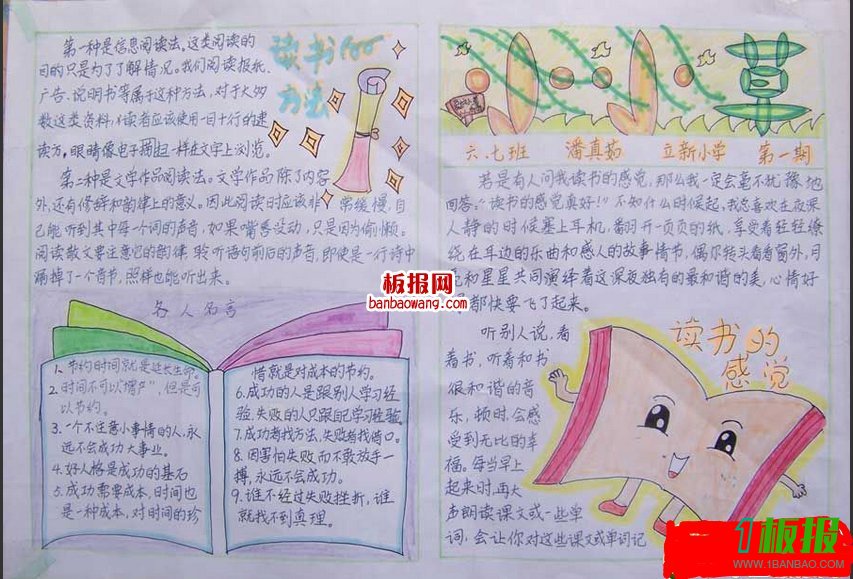 读书100
方法
第一种是信息阅读法,这类阅读的
目的只是为了了解情况。我们阅读报纸、
广告、说明书等属于这种方法,对于大多
数这类资料,读者应该使用一目十行的速
读方,眼睛像电子扫描一样在文字上浏览。
第二种是文学作品阅读法。文学作品除了内容
外,还有修辞和韵律上的意义。因此阅读时应该非常缓慢,自
己能听到其中每一个词的声音,如果嘴唇没动,只是因为偷懒。
阅读散文要注意它的韵律,聆听语句前后的声音,即使是一行诗中
漏掉了一个音节,照样也能听出来。
名人名言
1.节约时间就是延长生命。
2.时间不可以但是可
以节约。
3.一个不注意小事情的人,永
远不会成功大事业。
4.好人格是成功的基石
5.成功需要成本,时间也
是一种成本,对时间的珍
惜就是对成本的节约。
6.成功的人是跟别人学习经
验,失败的人只跟自己学习经验。
7.成功者找方法,失败者找借口。
8.因害怕失败而不敢放手一
搏,永远不会成功。
9.谁不经过失败挫折,谁
就找不到真理。
小小草
六.七班 潘真茹 立新小学 第一期
若是有人问我读书的感觉,那么我一定会毫不犹豫地
回答:“读书的感觉真好!”不知什么时候起,我总喜欢在夜深
人静的时候塞上耳机,翻开一页页的纸,享受着轻轻缭
绕在耳边的乐曲和感人的故事情节,偶尔转头看看窗外,月
亮和星星共同演绎着这深夜独有的最和谐的美,心情好
都快要飞了起来。
读书的
感觉
听别人说,看
着书,听着和书
很和谐的音
乐,顿时,会感
受到无比的幸
福。每当早上
起来时,再大
声朗读课文或一些单
词,会让你对这些课文或单词记
板报网
banbaowang.com
1板报
WWW.1BANBAO.COM